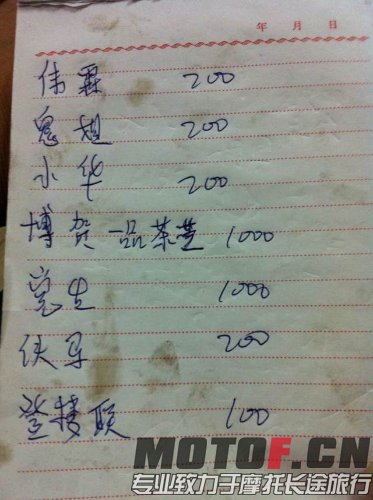 年 月 日
伟霖 200
鬼超 200
小华 200
博贺一品茶芝 1000
党生 1000
伙军 200
登楼联 100
MOTOF.CN
专业致力于摩托长途旅行